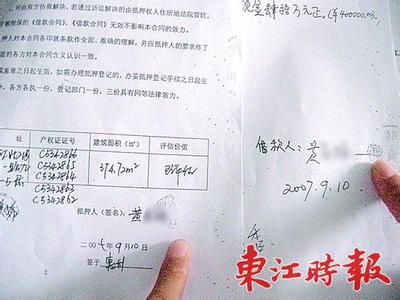 方协商解决，若通过诉讼解决的由抵押权人住所地法院管辖。
《借款合同》无效不影响本合同的效力。
对本合同各印就条款作全面、准确的理解，并应抵押人的要求作了
的各方对本合同含义认识一致。
盖章之日起生效，如需办理抵押登记的，办妥抵押登记手续之日起生
份，各方各执一份，登记部门一份，三份具有同等法律效力。
址 产权证证号 建筑面积（m²） 评估价值
C5342866
C5342865
C5342864
C5342863
C5342862
374.72m²
抵押人（签名）：黄
2007年9月10日
签于
2
现金肆拾万元正。(¥400000.00元)
借款人：黄
2007.9.10
東江時報